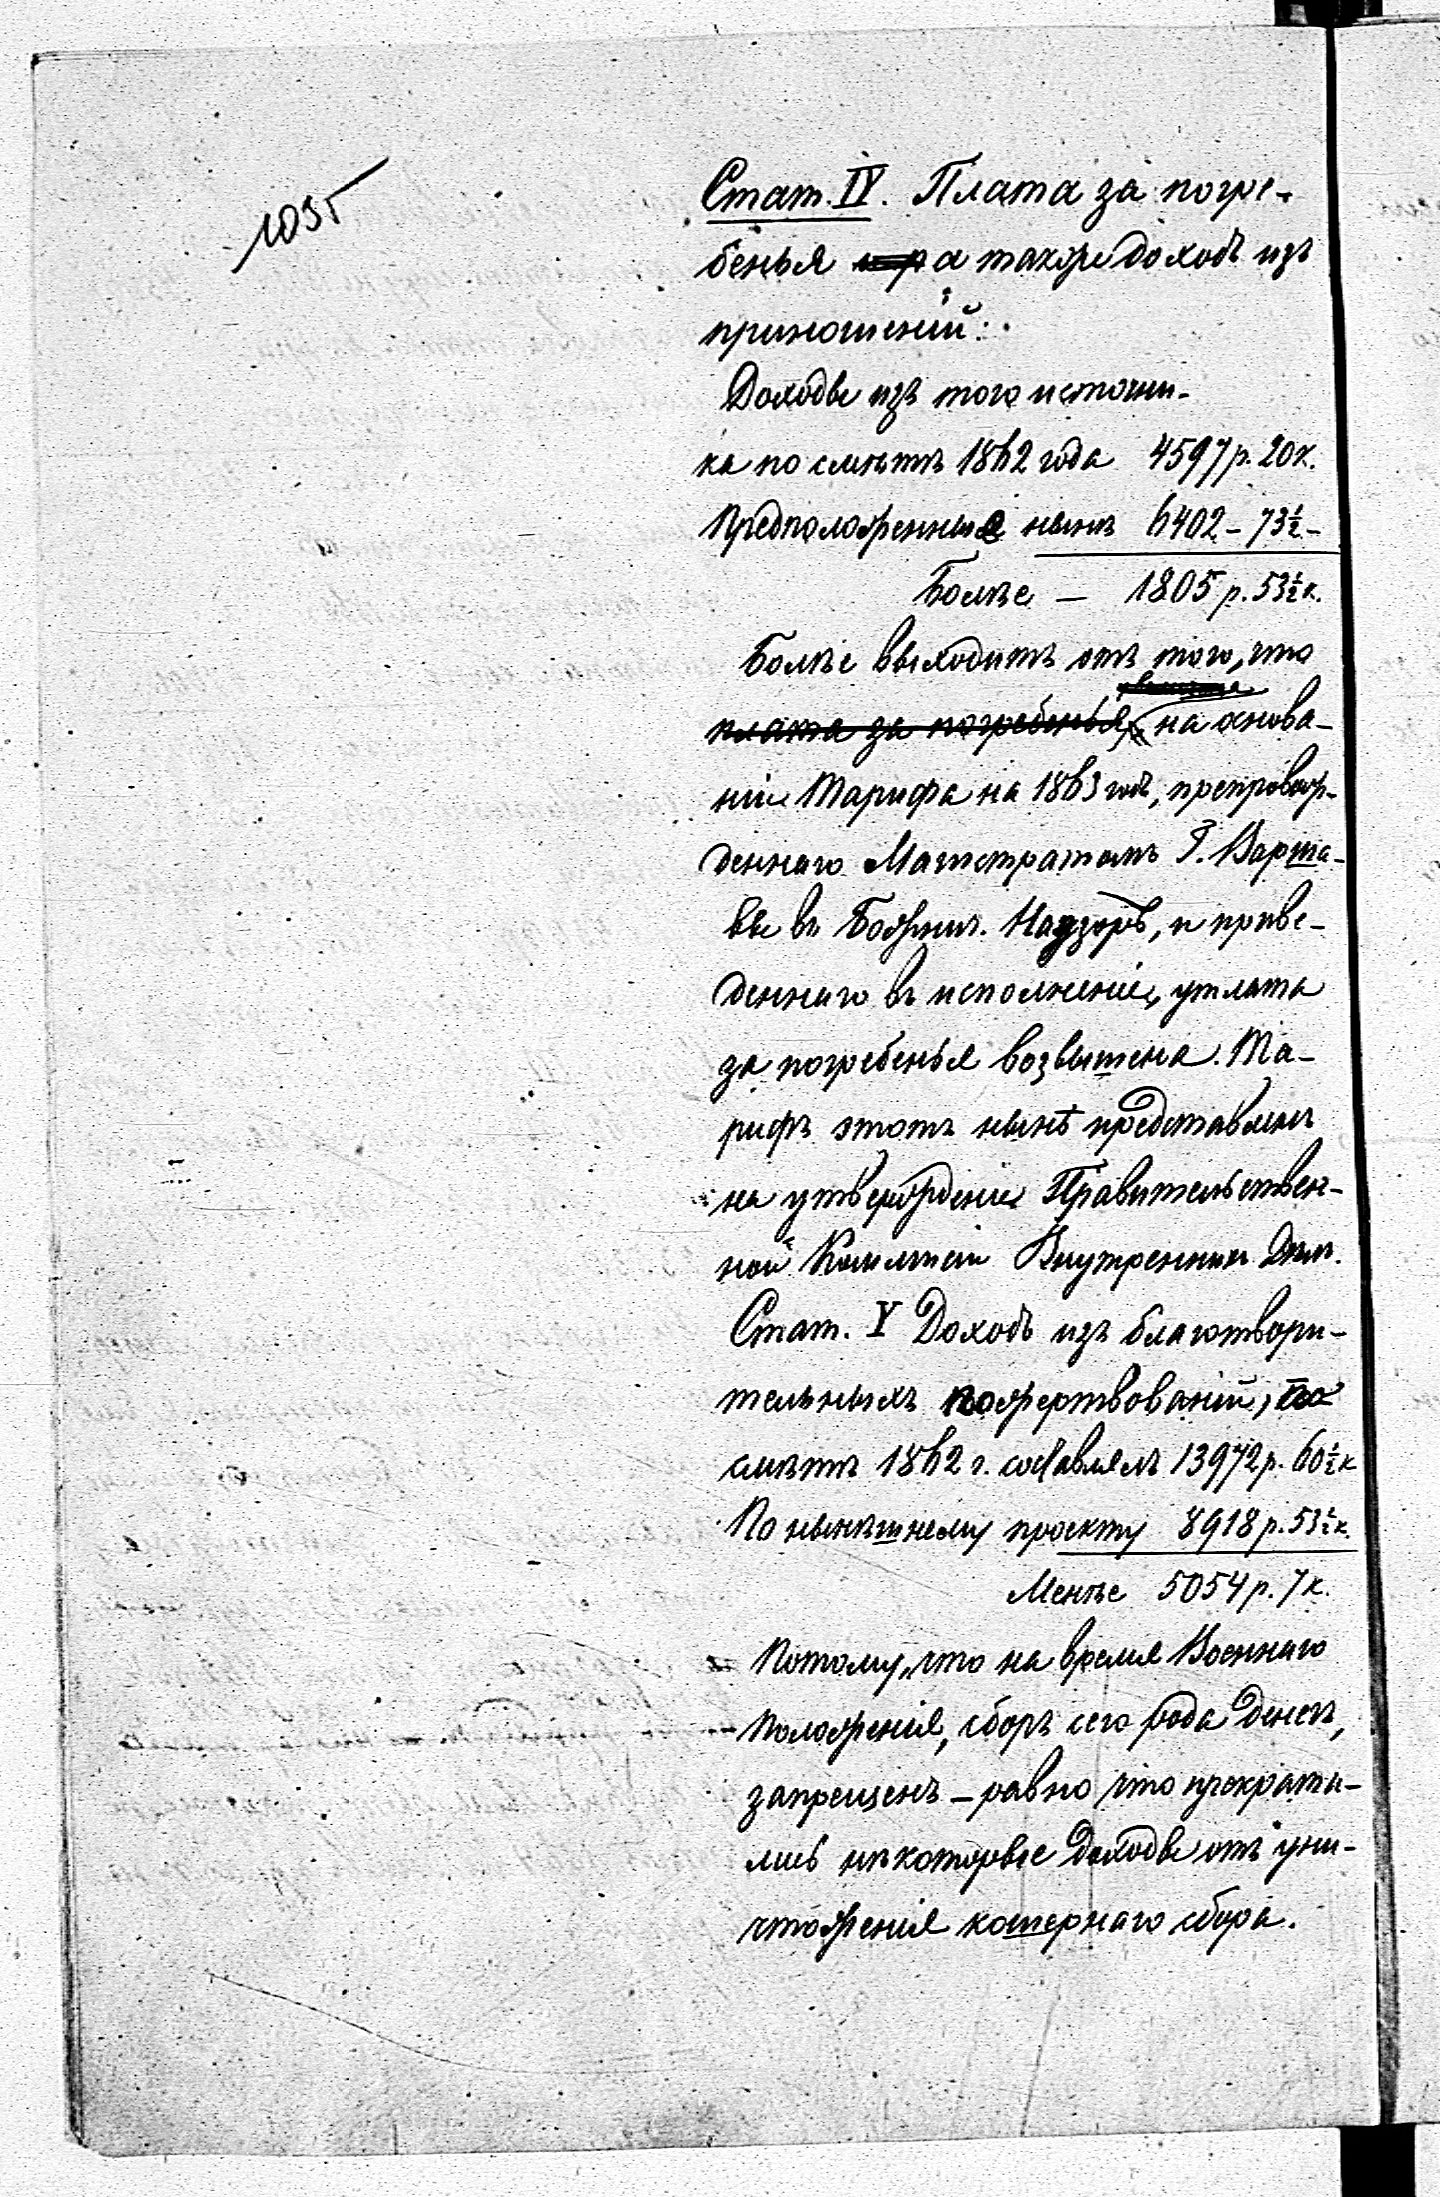 1035
Стат. IV. Плата за погре-
бенья а также доходъ изъ
приношеній:
Доходы изъ того источни-
ка по смѣтѣ 1862 года 4597 р. 20 к.
Предположенные нынѣ 6402 - 73½ -
Болѣе — 1805 р. 53½ к.
Болѣе выходитъ отъ того, что
плата за погребенья на основа-
ніи Тарифа на 1863 годъ, препровож-
деннаго Магистратомъ Г. Варша-
вы въ Божнич. Надзоръ, и приве-
деннаго въ исполненіе, уплата
за погребенья возвышена. Та-
рифъ этотъ нынѣ представленъ
на утвержденіе Правительствен-
ной Коммисіи Внутреннихъ Дѣлъ.
Стат. V Доходъ изъ благотвори-
тельныхъ пожертвованій, по
смѣтѣ 1862 г. составлялъ 13972 р. 60½ к
По нынѣшнему проекту 8918 р. 53½ к.
Менѣе 5054 р. 7 к.
Потому, что на время Военнаго
Положенія, сборъ сего рода денегъ,
запрещенъ — равно что прекрати-
лись нѣкоторые доходы отъ уни-
чтоженія кошернаго сбора.